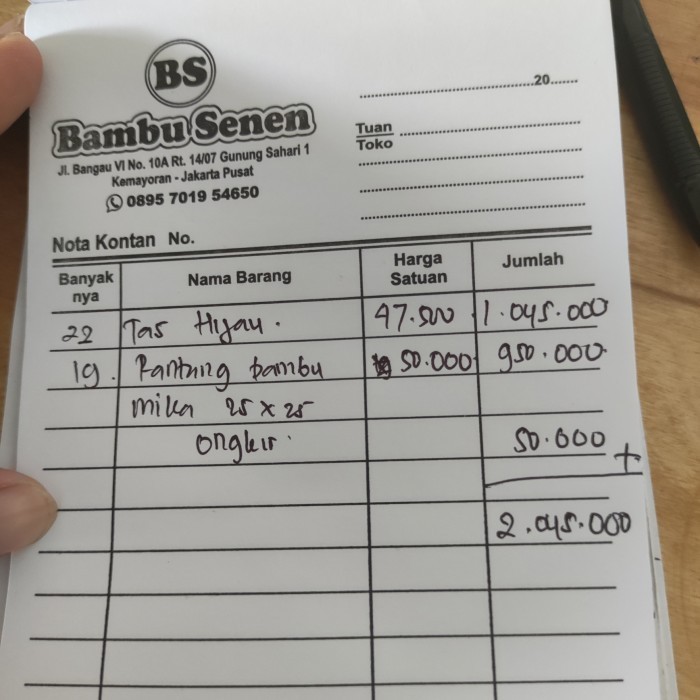 BS
Bambu Senen
Jl. Bangau VI No. 10A Rt. 14/07 Gunung Sahari 1
Kemayoran - Jakarta Pusat
0895 7019 54650
20
Tuan
Toko
Nota Kontan No.
Banyak nya Nama Barang Harga Satuan Jumlah
22 Tas Hijau. 47.500 1.045.000
19. Pantung bambu 50.000 950.000
mika 25 x 25
ongkir. 50.000 +
2.045.000